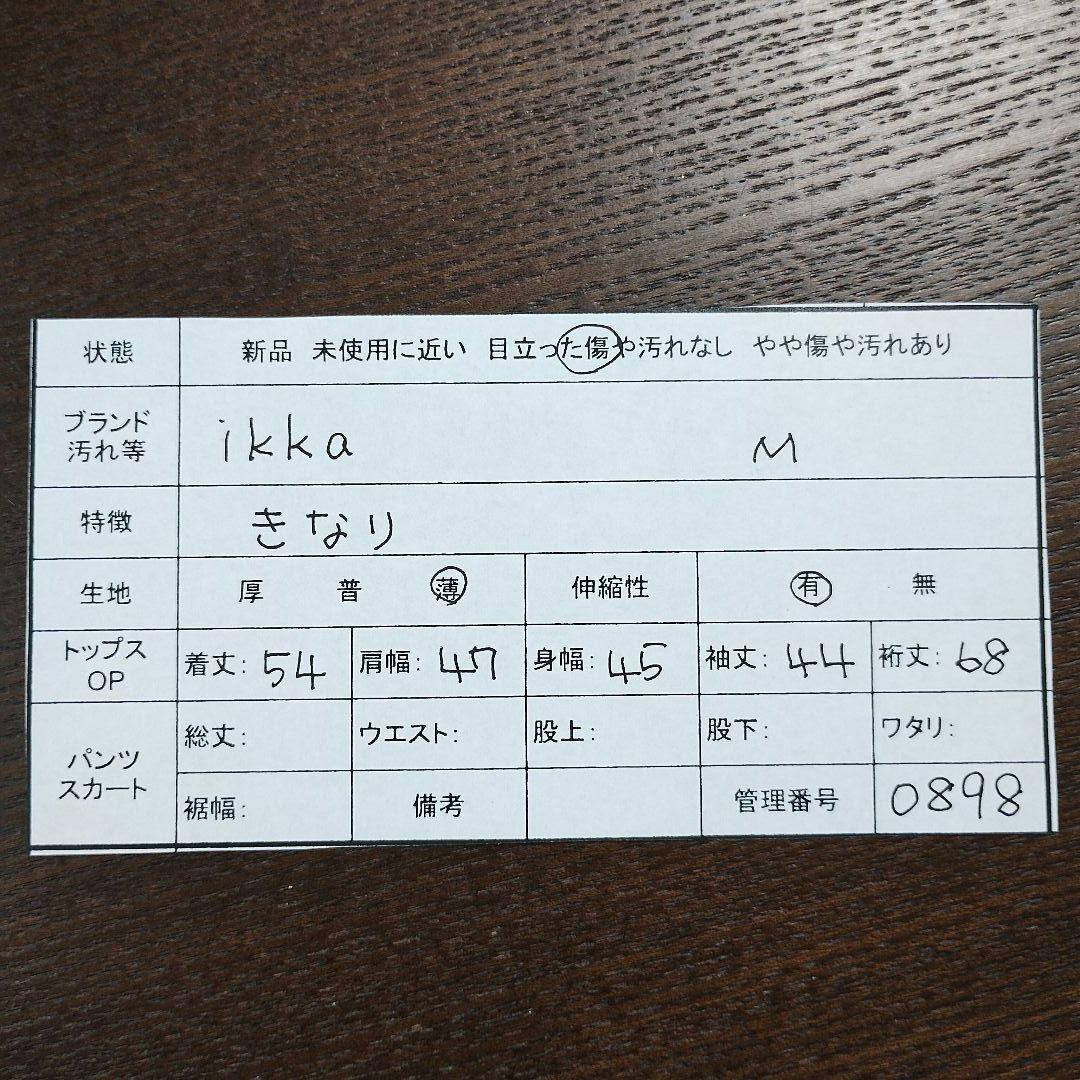 状態 新品 未使用に近い 目立った傷や汚れなし やや傷や汚れあり
ブランド
汚れ等
ikka M
特徴 きなり
生地 厚 普 薄 伸縮性 有 無
トップス
OP
着丈: 54 肩幅: 47 身幅: 45 袖丈: 44 裄丈: 68
パンツ
スカート
総丈: ウエスト: 股上: 股下: ワタリ:
裾幅: 備考 管理番号 0898